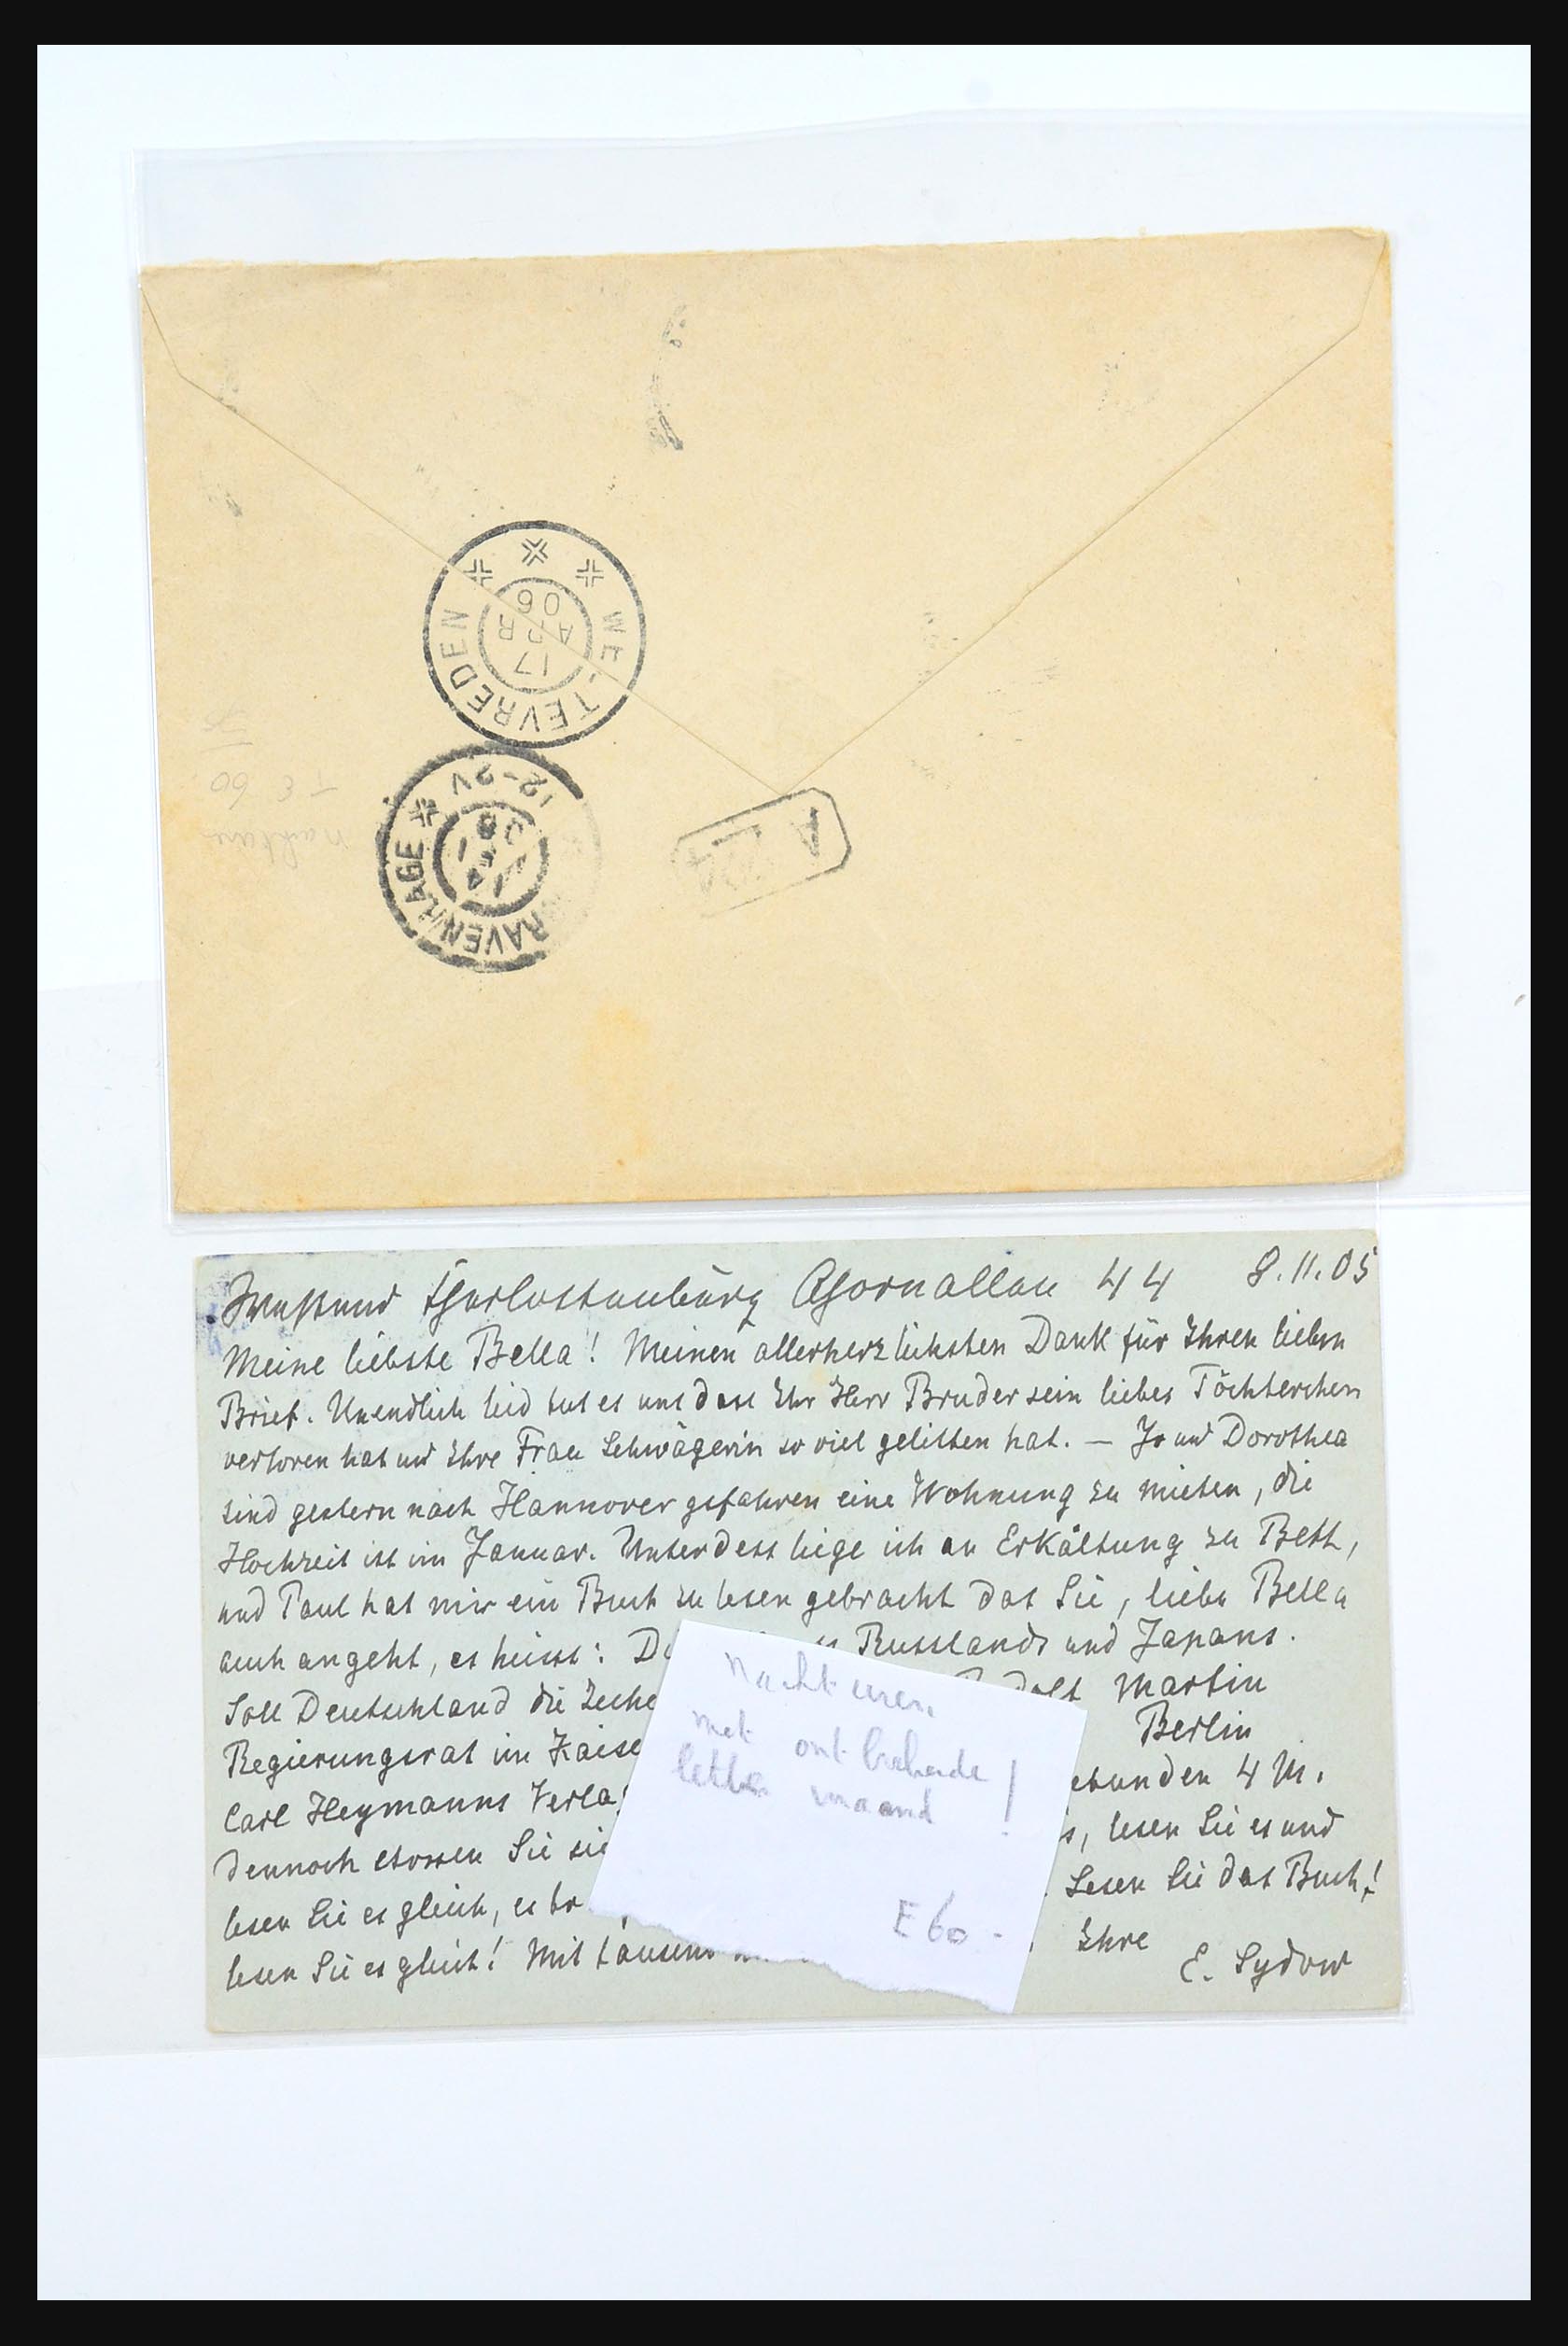 WE TEVREDEN
17
APR
06
RAVENHAGE
12-2V
A
Westend Charlottenburg Ahornallee 44 8.11.05
Meine liebste Bella! Meinen allerherzlichsten Dank für Ihren lieben
Brief. Unendlich leid tut es uns dass Ihr Herr Bruder sein liebes Töchterchen
verloren hat und Ihre Frau Schwägerin so viel gelitten hat. — Jo und Dorothea
sind gestern nach Hannover gefahren eine Wohnung zu mieten, die
Hochzeit ist im Januar. Unterdess liege ich an Erkältung zu Bett,
und Paul hat mir ein Buch zu lesen gebracht das Sie, liebe Bella
auch angeht, es heisst: D Russlands und Japans.
Soll Deutschland die Zeche dolf Martin
Regierungsrat im Kaise Berlin
Carl Heymanns Verlag ebunden 4 M.
Dennoch Sie sie s, lesen Sie es und
lesen Sie es gleich, es br Lesen Sie das Buch!
lesen Sie es gleich! Mit tausend Ihre
E. Sydow
Nacht uren
met ontbrekende
letter maand !
E 60 -